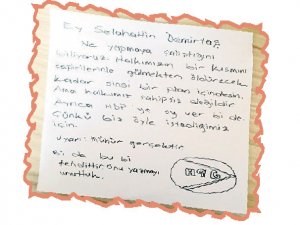 Ey Selahattin Demirtaş
Ne yapmaya çalıştığını
biliyoruz. Halkımızın bir kısmını
espirilerinle gülmekten öldürecek
kadar sinsi bir plan içindesin.
Ama halkımız sahipsiz değildir
Ayrıca HDP'ye oy ver bi de.
Çünkü biz öyle istediğimiz
için.
Uyarı: Mühür gerçektir
bi de bu bi
tehdittir onu yazmayı
unuttuk.